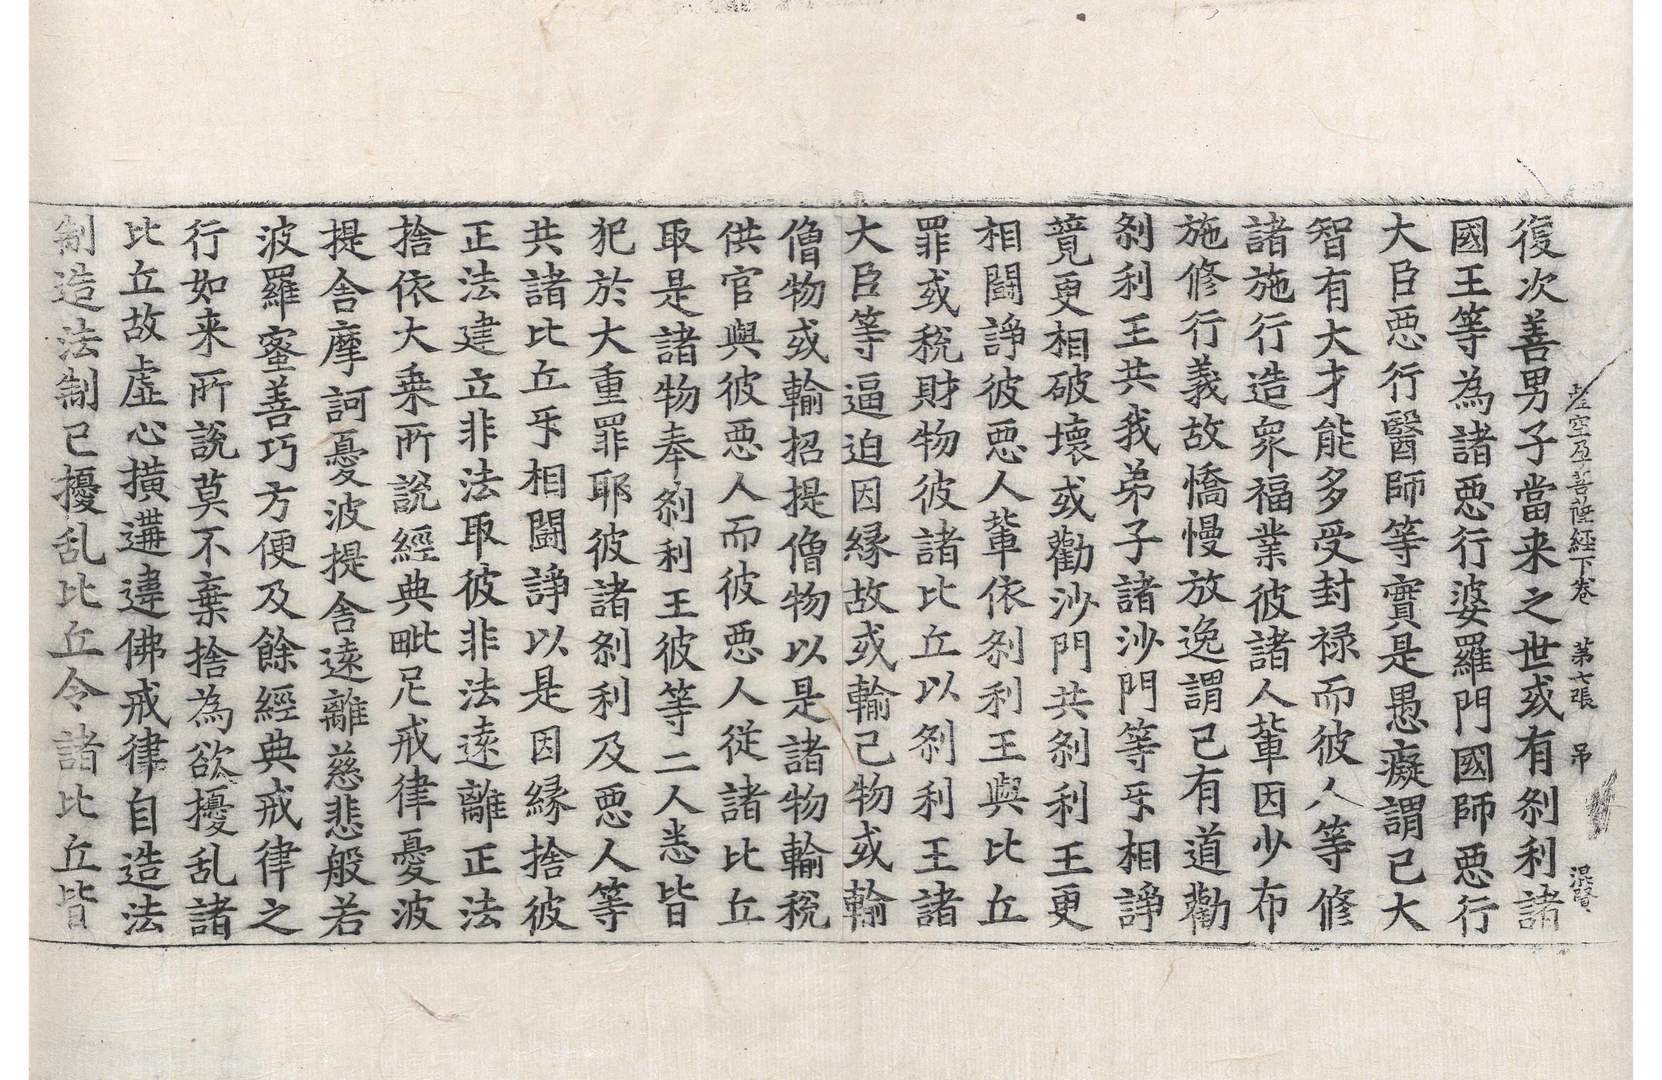 虛空孕菩薩経下卷 第七張 吊 混賢
復次善男子當来之世或有刹利諸
國王等為諸惡行婆羅門國師惡行
大臣惡行醫師等實是愚癡謂已大
智有大才能多受封禄而彼人等修
諸施行造衆福業彼諸人軰因少布
施修行義故憍慢放逸謂已有道勸
刹利王共我弟子諸沙門等㸦相諍
競更相破壞或勸沙門共刹利王更
相鬪諍彼惡人軰依刹利王與比丘
罪或稅財物彼諸比丘以刹利王諸
大臣等逼迫因縁故或輸己物或輸
僧物或輸招提僧物以是諸物輸稅
供官與彼惡人而彼惡人従諸比丘
取是諸物奉刹利王彼等二人悉皆
犯於大重罪耶彼諸刹利及惡人等
共諸比丘㸦相鬪諍以是因縁捨彼
正法建立非法取彼非法逺離正法
捨依大乗所說經典毗尼戒律憂波
提舍摩訶憂波提舍逺離慈悲般若
波羅蜜善巧方便及餘經典戒律之
行如来所說莫不棄捨為欲擾乱諸
比丘故虛心橫遘違佛戒律自造法
制造法制已擾乱比丘令諸比丘皆